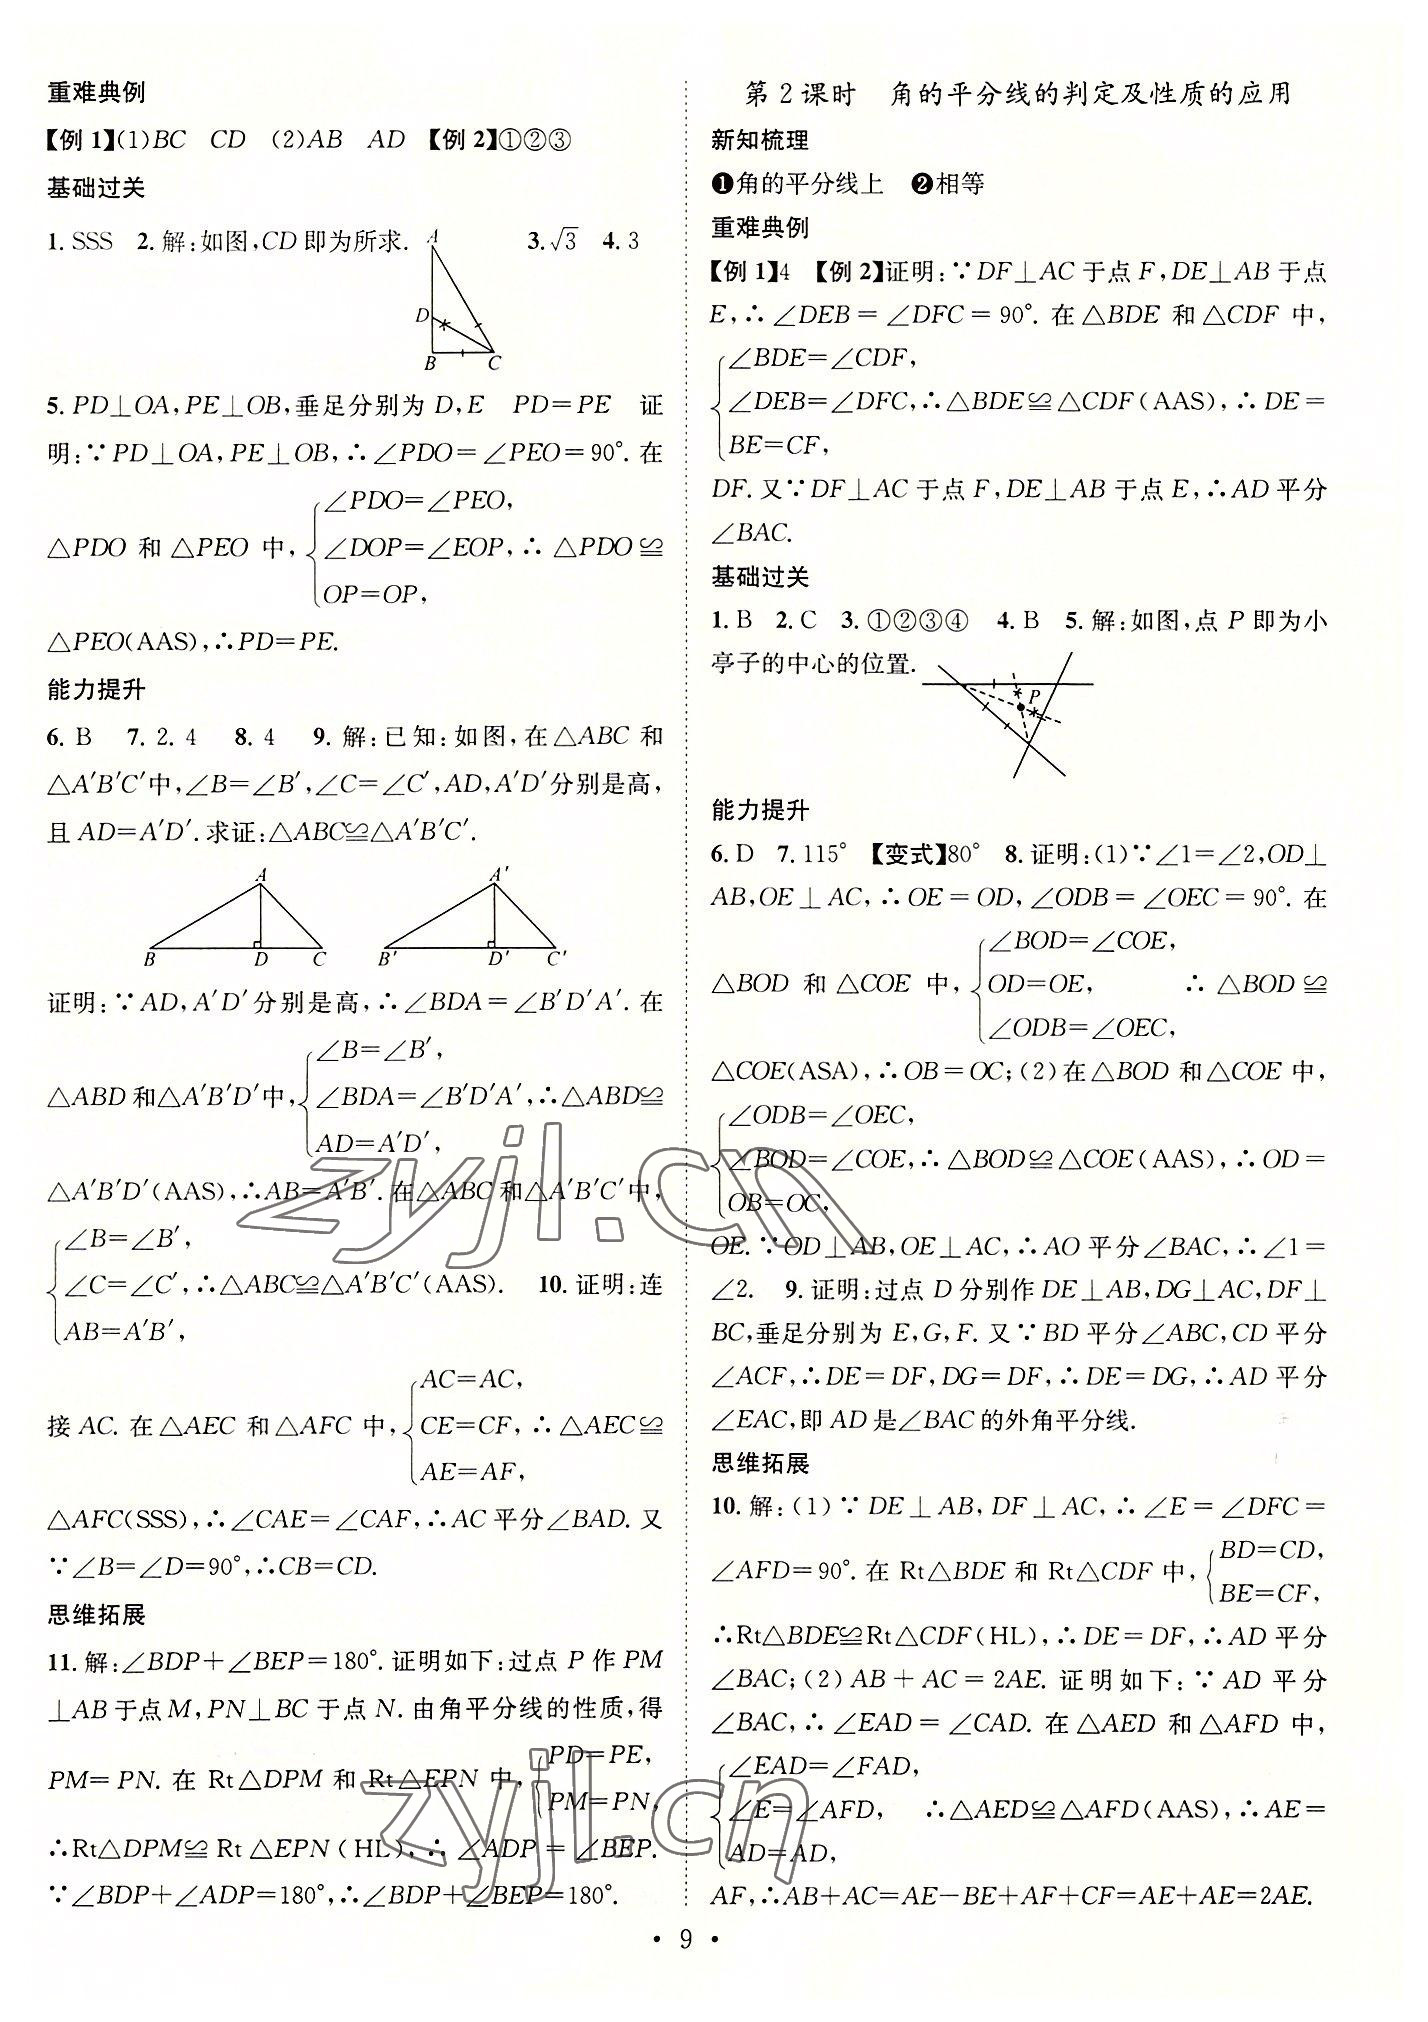 重难典例
【例1】(1)BC　CD　(2)AB　AD　【例2】①②③
基础过关
1. SSS　2. 解:如图,CD即为所求.　3. √3　4. 3
A
D
B
C
5. PD⊥OA,PE⊥OB,垂足分别为D,E　PD=PE　证
明:∵PD⊥OA,PE⊥OB,∴∠PDO=∠PEO=90°. 在
∠PDO=∠PEO,
△PDO和△PEO中,∠DOP=∠EOP,∴△PDO≌
OP=OP,
△PEO(AAS),∴PD=PE.
能力提升
6. B　7. 2. 4　8. 4　9. 解:已知:如图,在△ABC和
△A′B′C′中,∠B=∠B′,∠C=∠C′,AD,A′D′分别是高,
且AD=A′D′.求证:△ABC≌△A′B′C′.
A　A′
B　D　C　B′　D′　C′
证明:∵AD,A′D′分别是高,∴∠BDA=∠B′D′A′. 在
∠B=∠B′,
△ABD和△A′B′D′中,∠BDA=∠B′D′A′,∴△ABD≌
AD=A′D′,
△A′B′D′(AAS),∴AB=A′B′. 在△ABC和△A′B′C′中,
∠B=∠B′,
∠C=∠C′,∴△ABC≌△A′B′C′(AAS).　10. 证明:连
AB=A′B′,
AC=AC,
接AC. 在△AEC和△AFC中,CE=CF,∴△AEC≌
AE=AF,
△AFC(SSS),∴∠CAE=∠CAF,∴AC平分∠BAD. 又
∵∠B=∠D=90°,∴CB=CD.
思维拓展
11. 解:∠BDP+∠BEP=180°. 证明如下:过点P作PM
⊥AB于点M,PN⊥BC于点N. 由角平分线的性质,得
PD=PE,
PM=PN. 在Rt△DPM和Rt△EPN中,
PM=PN,
∴Rt△DPM≌Rt△EPN(HL),∴∠ADP=∠BEP.
∵∠BDP+∠ADP=180°,∴∠BDP+∠BEP=180°.
第2课时　角的平分线的判定及性质的应用
新知梳理
❶角的平分线上　❷相等
重难典例
【例1】4　【例2】证明:∵DF⊥AC于点F,DE⊥AB于点
E,∴∠DEB=∠DFC=90°. 在△BDE和△CDF中,
∠BDE=∠CDF,
∠DEB=∠DFC,∴△BDE≌△CDF(AAS),∴DE=
BE=CF,
DF. 又∵DF⊥AC于点F,DE⊥AB于点E,∴AD平分
∠BAC.
基础过关
1. B　2. C　3. ①②③④　4. B　5. 解:如图,点P即为小
亭子的中心的位置.
P
能力提升
6. D　7. 115°　【变式】80°　8. 证明:(1)∵∠1=∠2,OD⊥
AB,OE⊥AC,∴OE=OD,∠ODB=∠OEC=90°. 在
∠BOD=∠COE,
△BOD和△COE中,OD=OE,　∴△BOD≌
∠ODB=∠OEC,
△COE(ASA),∴OB=OC;(2)在△BOD和△COE中,
∠ODB=∠OEC,
∠BOD=∠COE,∴△BOD≌△COE(AAS),∴OD=
OB=OC,
OE. ∵OD⊥AB,OE⊥AC,∴AO平分∠BAC,∴∠1=
∠2.　9. 证明:过点D分别作DE⊥AB,DG⊥AC,DF⊥
BC,垂足分别为E,G,F. 又∵BD平分∠ABC,CD平分
∠ACF,∴DE=DF,DG=DF,∴DE=DG,∴AD平分
∠EAC,即AD是∠BAC的外角平分线.
思维拓展
10. 解:(1)∵DE⊥AB,DF⊥AC,∴∠E=∠DFC=
BD=CD,
∠AFD=90°. 在Rt△BDE和Rt△CDF中,
BE=CF,
∴Rt△BDE≌Rt△CDF(HL),∴DE=DF,∴AD平分
∠BAC;(2)AB+AC=2AE. 证明如下:∵AD平分
∠BAC,∴∠EAD=∠CAD. 在△AED和△AFD中,
∠EAD=∠FAD,
∠E=∠AFD,　∴△AED≌△AFD(AAS),∴AE=
AD=AD,
AF,∴AB+AC=AE−BE+AF+CF=AE+AE=2AE.
· 9 ·
zyjl.cn
zyjl.cn